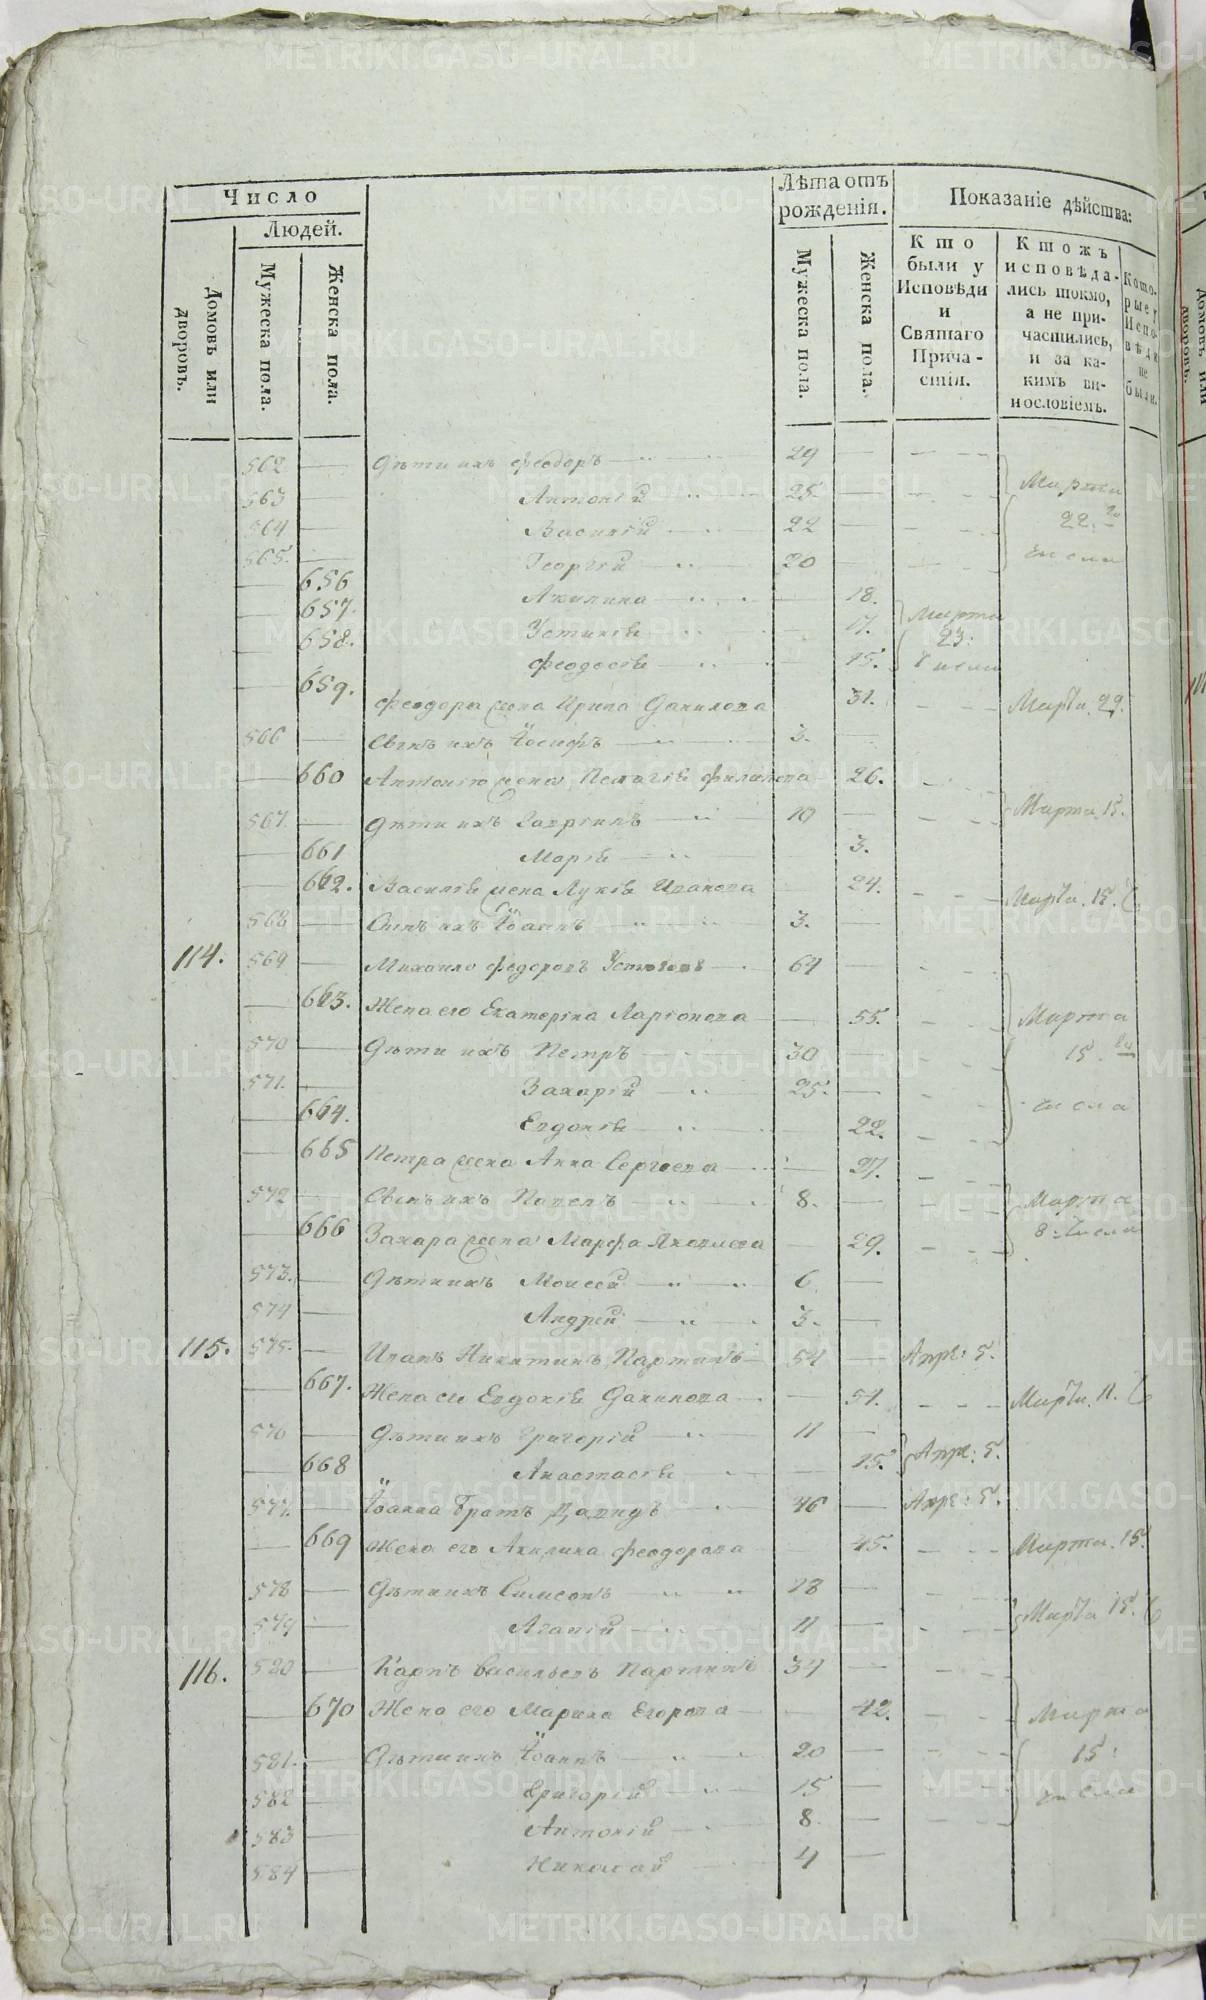 Число
Людей.
Домовъ или дворовъ.
Мужеска пола.
Женска пола.
Лѣта отъ рожденія.
Мужеска пола.
Женска пола.
Показаніе дѣйства:
Кто были у Исповѣди и Святаго Причастія.
Ктожъ исповѣдались токмо, а не причастились, и за какимъ винословіемъ.
Которые у Исповѣди не были.
562 — Дѣти ихъ Феодоръ — 29 —
563 Антоній 25 — Марта
564 — Василій 22 — 22. го
565. — Георгій — 20 — числа
— 656 Акилина — 18.
— 657. Устинія — 17. Марта 23:
— 658. Феодосія — 15. числа
— 659. Феодора жена Ирина Данилова 31. Марта 29.
566 — Сынъ ихъ Іосифъ — 3. —
— 660 Антонія жена Пелагія Филипова 26.
567. — Дѣти ихъ Гавріилъ — 10 — Марта 15.
— 661 Марія — 3.
— 662. Василія жена Лукія Иванова 24. Марта 15.
568 — Сынъ ихъ Іоаннъ 3. —
114. 569 — Михаило Федоровъ 64 —
— 663. Жена его Екатерина Ларіонова 55. Марта
570 — Дѣти ихъ Петръ — 30 — 15. го
571. — Захарій — 25. — числа
— 664. Евдокія — 22.
— 665 Петра жена Анна Сергѣева — 27.
572 — Сынъ ихъ Павелъ — 8. — Марта
— 666 Захара жена Марфа 29. 8. числа
573. — Дѣти ихъ Моисей — 6 —
574 — Андрей — 3. —
115. 575. — Иванъ Никитинъ Партинъ 54 — Апре: 5.
— 667. Жена его Евдокія Данилова 51. Марта. 11.
576 — Дѣти ихъ Григорій — 11 —
— 668 Анастасія — 15. Апре: 5.
577. — Іоанна братъ Давидъ 46 — Апре: 5.
— 669 Жена его Акилина Феодорова 45. Марта. 15.
578 — Дѣти ихъ Симеонъ 18 —
579 — Агапій — 11 — Марта 15.
116. 580 — Карпъ Васильевъ Партинъ 34 —
— 670 Жена его Марина Егорова 42. Марта
581. — Дѣти ихъ Іоаннъ — 20 — 15:
582 — Григорій — 15 — числа
583 — Антоній — 8. —
584 — Николай 4 —
METRIKI.GASO-URAL.RU